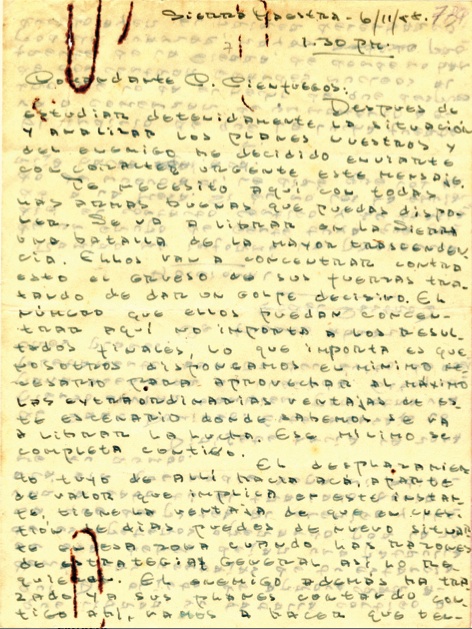 Sierra Maestra - 6/11/58.
1.30 p.m.
Comandante C. Cienfuegos:
Despues de
estudiar detenidamente la situación
y analizar los planes nuestros y
del enemigo he decidido enviarte
con carácter urgente este mensaje.
Te necesito aquí con todas
las armas buenas que puedas dispo-
ner. Se va a librar en la Sierra
una batalla de la mayor trascenden-
cia. Ellos van a concentrar contra
esto el grueso de sus fuerzas tra-
tando de dar un golpe decisivo. El
número que ellos puedan concen-
trar aquí no importa a los resul-
tados finales, lo que importa es que
nosotros dispongamos el mínimo ne-
cesario para aprovechar al máximo
las extraordinarias ventajas de es-
te escenario donde sabemos se va
a librar la lucha. Ese mínimo se
completa contigo.
El desplazamien
to tuyo de allí hacia acá, aparte
de valor que implica en este instan-
te, tiene la ventaja de que en cues-
tión de días puedes de nuevo situar
te en esa zona cuando las razones
de estrategia general así lo re-
quieran. El enemigo además ha tra-
zado ya sus planes contando con-
tigo ahí, vamos a hacer que ten-